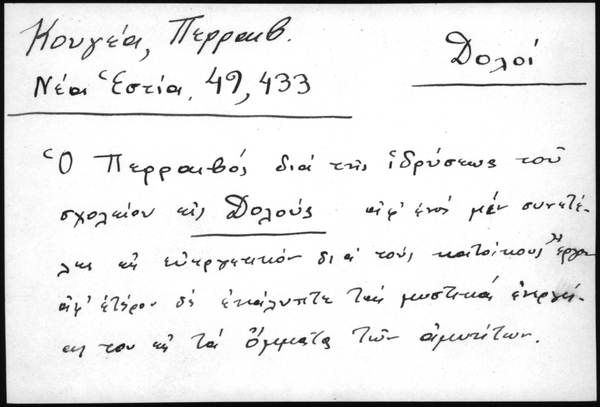 Κουγέα, Περραιβ.
Δολοί
Νέα Ἑστία, 49, 433
Ὁ Περραιβός διά τῆς ἱδρύσεως τοῦ
σχολείου εἰς Δολούς ἀφ' ἑνός μέν συνετέ-
λει εἰς εὐεργετικόν διά τούς κατοίκους ἔργον
ἀφ' ἑτέρου δέ ἐκάλυπτε τάς μυστικάς ἐνεργεί-
ας του εἰς τά ὄμματα τῶν ἀμυήτων.